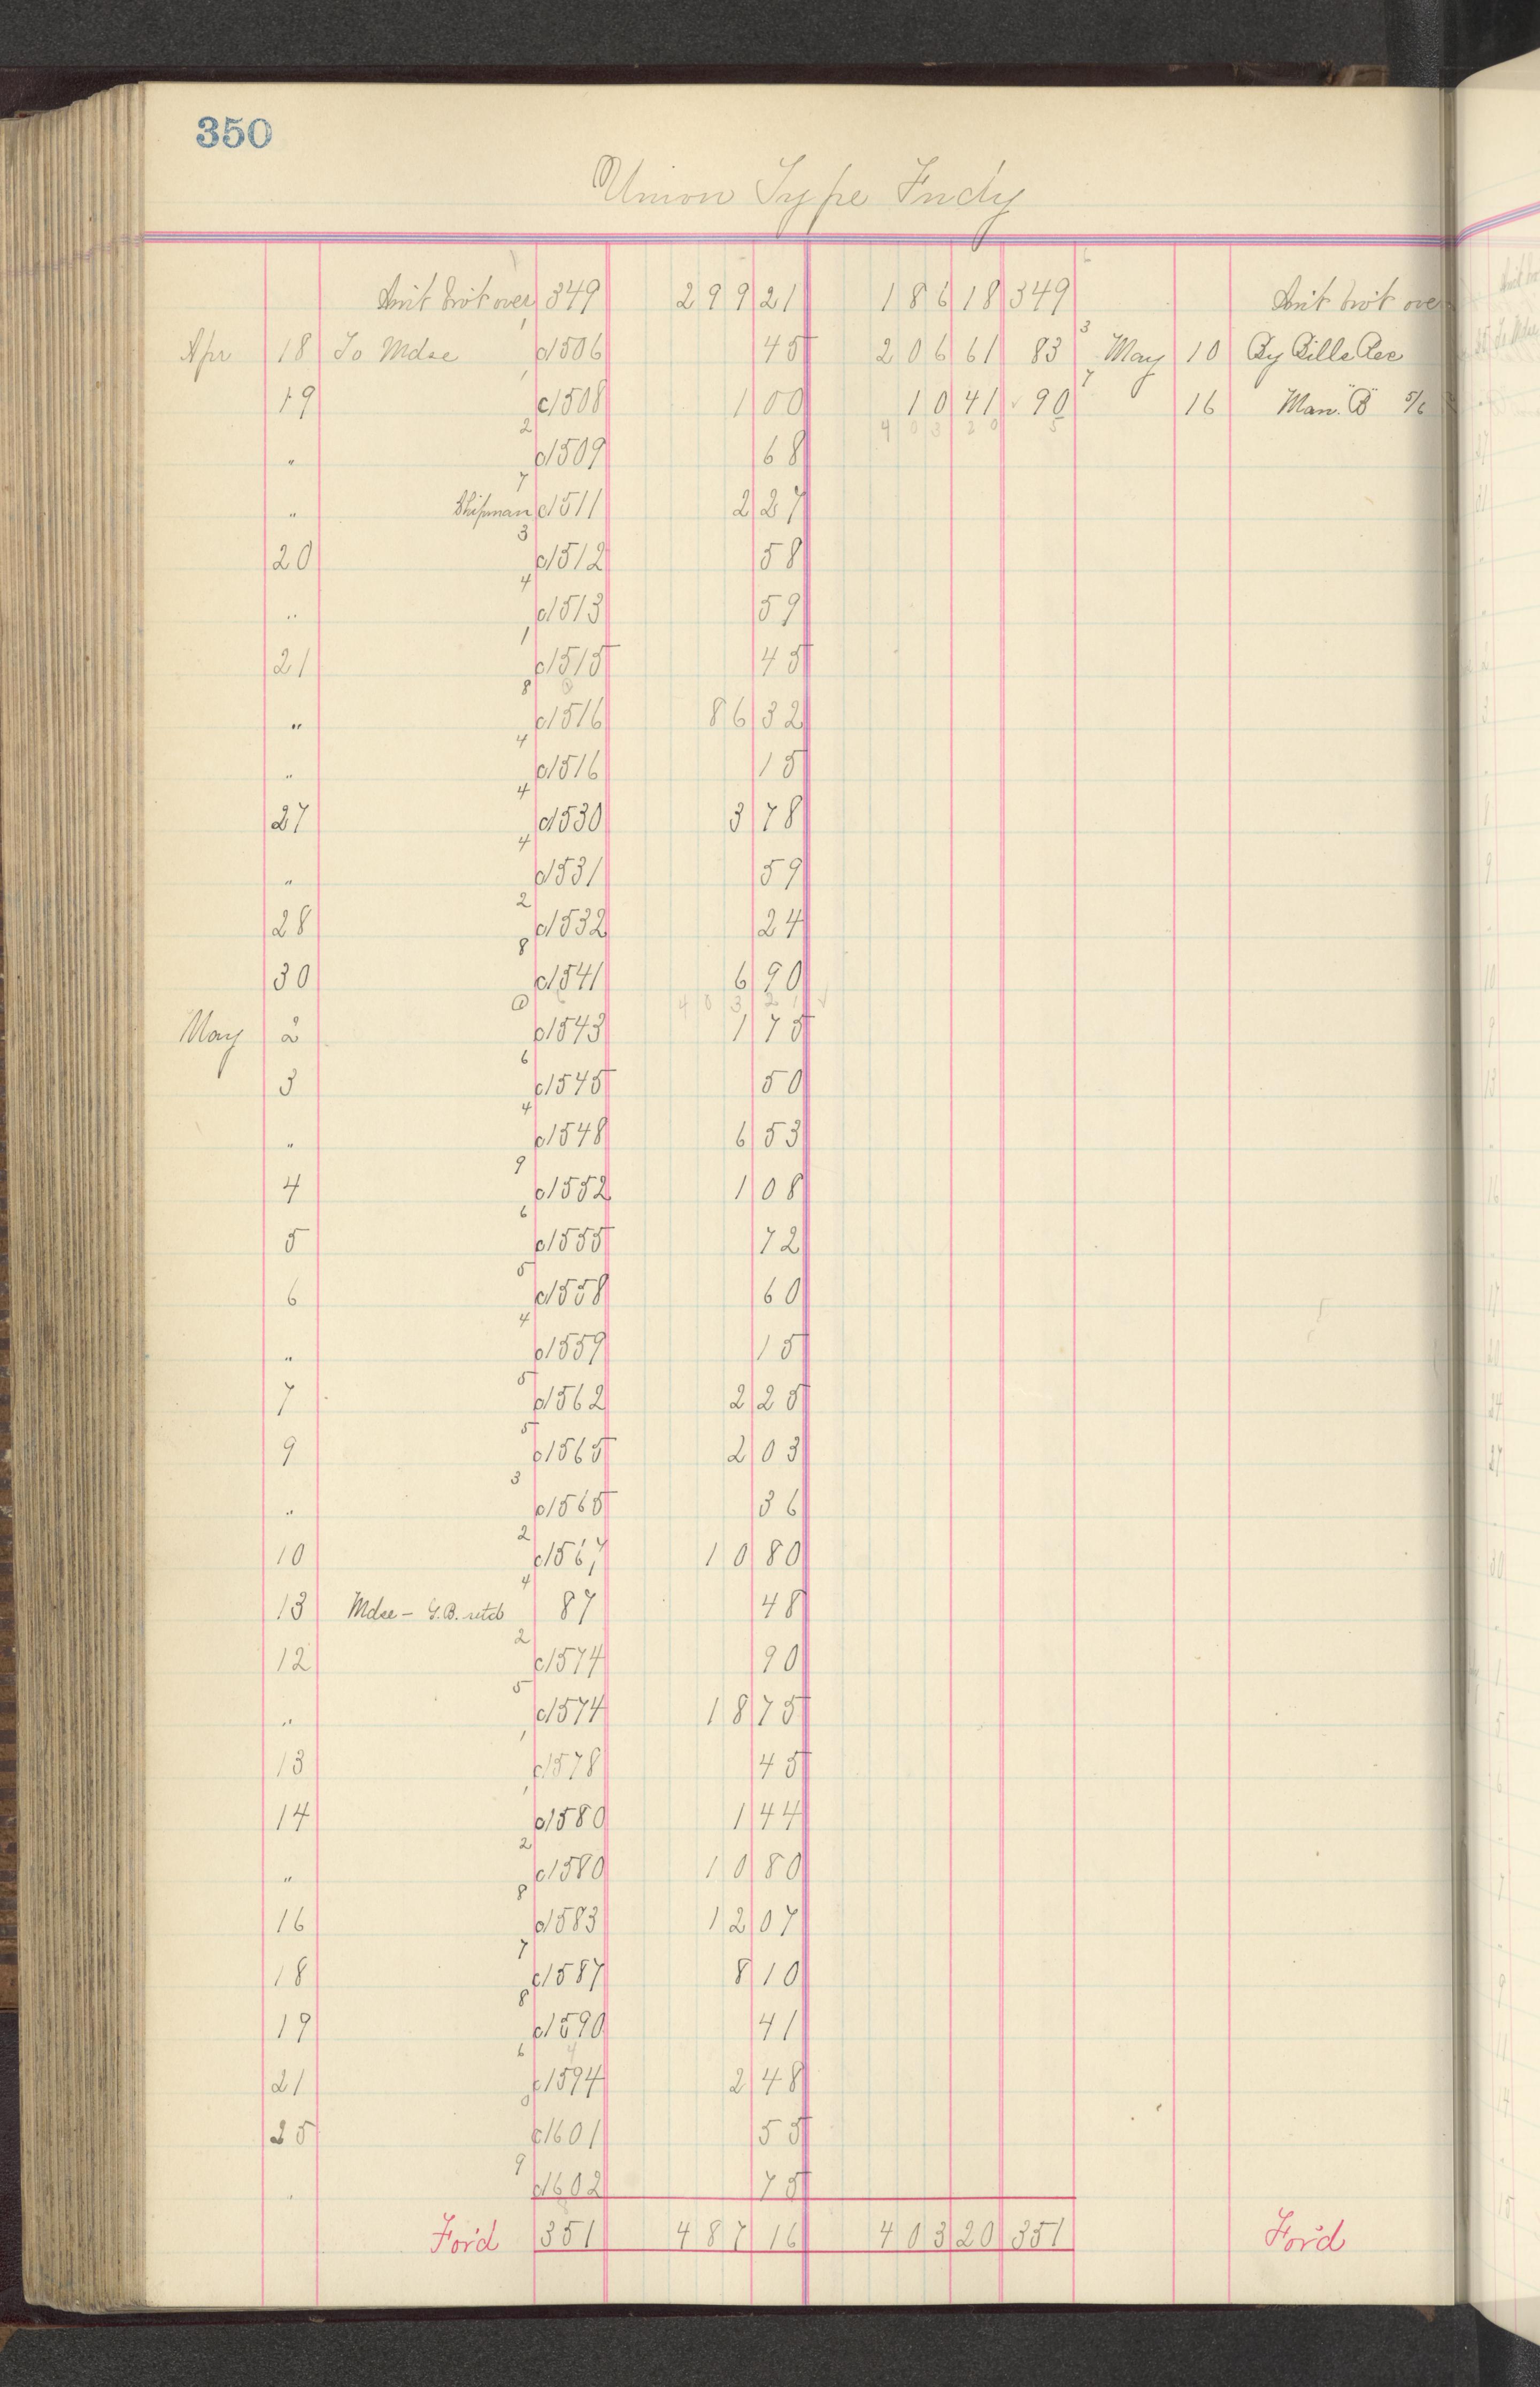 350
Union Type Fndy
Am't bro't over 349 299 21 186 18 349 Am't bro't over
Apr 18 To Mdse c/506 45 206 61 83 May 10 By Bills Rec
19 c/508 1 00 10 41 90 16 Man. "B" 5/6
403 20
" c/509 68
" Shipman c/511 2 27
20 c/512 58
" c/513 59
21 c/515 45
" c/516 86 32
" c/516 15
27 c/530 3 78
" c/531 59
28 c/532 24
30 c/541 6 90
403 21 ✓
May 2 c/543 1 75
3 c/545 50
" c/548 6 53
4 c/552 1 08
5 c/555 72
6 c/558 60
" c/559 15
7 c/562 2 25
9 c/565 2 03
" c/565 36
10 c/567 10 80
13 Mdse - G.B. retd 87 48
12 c/574 90
" c/574 18 75
13 c/578 45
14 c/580 1 44
" c/580 10 80
16 c/583 12 07
18 c/587 8 10
19 c/590 41
21 c/594 2 48
25 c/601 55
" c/602 75
For'd 351 487 16 403 20 351 For'd